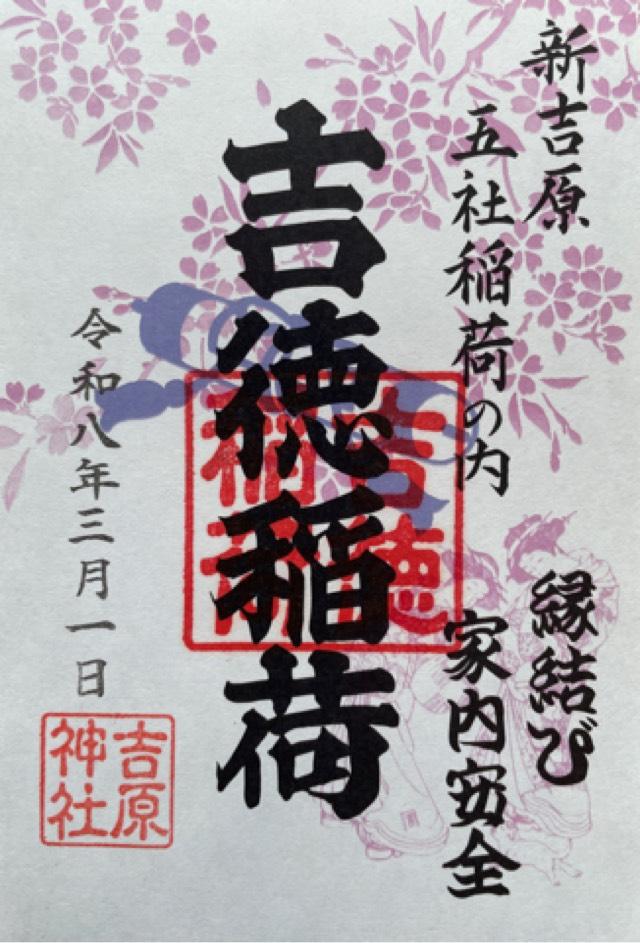 新吉原
五社稲荷の内
縁結び
家内安全
吉徳稲荷
吉徳
稲荷
令和八年三月一日
吉原
神社